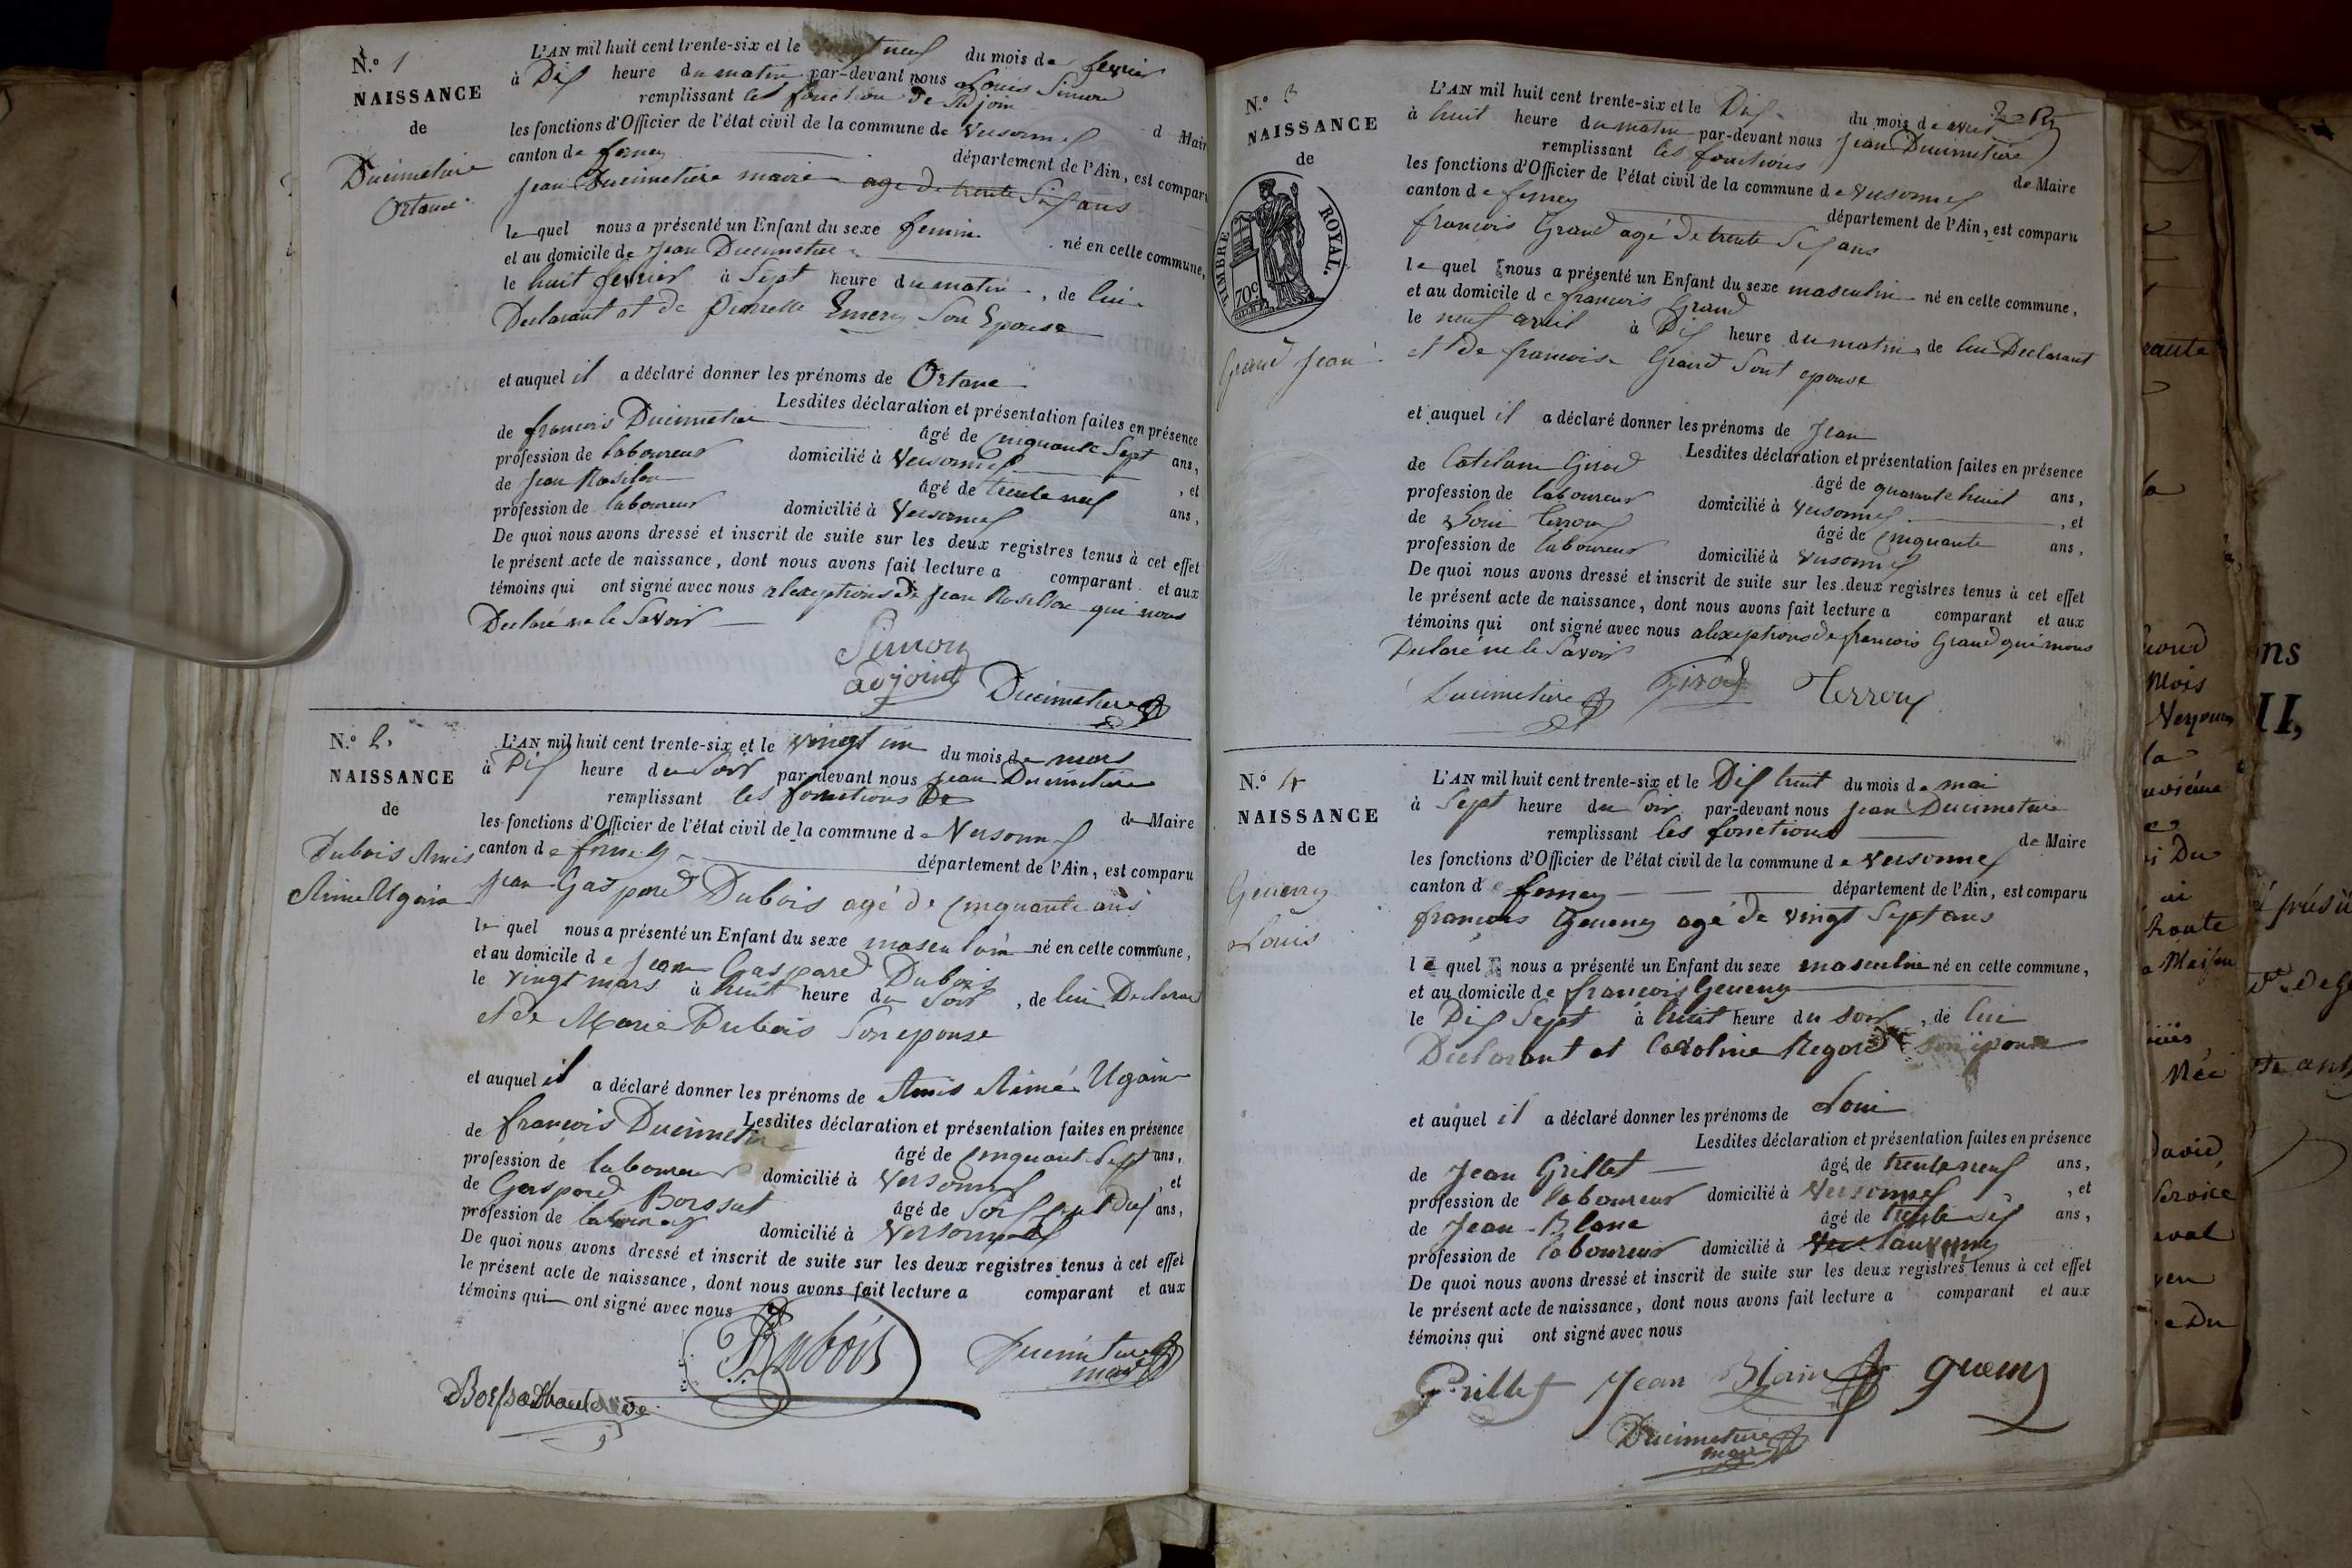 N.º 1
NAISSANCE
de
Ducimetière
Octavie
L'AN mil huit cent trente-six et le vingt neuf du mois de fevrier
à Dix heure du matin par-devant nous Louis Simon
remplissant les fonction de Adjoin d Mair
les fonctions d'Officier de l'état civil de la commune de Versonnex
canton de ferney département de l'Ain, est compar
Jean Ducimetière maire age de trente Six ans
le quel nous a présenté un Enfant du sexe feminin né en cette commune,
et au domicile de Jean Ducimetiere
le huit fevrier à Sept heure du matin, de lui
Declarant et de Pernette Emery Son Epouse
et auquel il a déclaré donner les prénoms de Octavie
Lesdites déclaration et présentation faites en présence
de francois Ducimetiere âgé de cinquante Sept ans,
profession de laboureur domicilié à Versonnex, et
de Jean Rosilon âgé de trente neuf ans,
profession de laboureur domicilié à Versonnex
De quoi nous avons dressé et inscrit de suite sur les deux registres tenus à cet effet
le présent acte de naissance, dont nous avons fait lecture a comparant et aux
témoins qui ont signé avec nous alexeptions de Jean Rosillon qui nous
Declaré ne le Savoir
Simon
adjoint Ducimetiere
N.º 2.
NAISSANCE
de
Dubois Amis
Aimé Ugain
L'AN mil huit cent trente-six et le vingt un du mois de mars
à Dix heure du Soir par-devant nous Jean Ducimetiere
remplissant les fonctions De de Maire
les fonctions d'Officier de l'état civil de la commune de Versonnex
canton de ferney département de l'Ain, est comparu
Jean Gaspard Dubois agé de cinquante ans
le quel nous a présenté un Enfant du sexe masculain né en cette commune,
et au domicile de Jean Gaspard Dubois
le vingt mars à huit heure du Soir, de lui Declaran
et de Marie Dubois Son epouse
et auquel il a déclaré donner les prénoms de Amis Aimé Ugain
Lesdites déclaration et présentation faites en présence
de françois Ducimetiere âgé de cinquant Sept ans,
profession de laboureur domicilié à Versonnex, et
de Gaspard Borssat âgé de ans,
profession de domicilié à Versonnex
De quoi nous avons dressé et inscrit de suite sur les deux registres tenus à cet effet
le présent acte de naissance, dont nous avons fait lecture a comparant et aux
témoins qui ont signé avec nous
Dubois Ducimetiere
maire
N.º 3
NAISSANCE
de
TIMBRE ROYAL.
70c
Grand Jean
L'AN mil huit cent trente-six et le Dix du mois de avril
à huit heure du matin par-devant nous Jean Ducimetiere
remplissant les fonctions de Maire
les fonctions d'Officier de l'état civil de la commune de Versonnex
canton de ferney département de l'Ain, est comparu
francois Grand agé de trente Six ans
le quel nous a présenté un Enfant du sexe masculin né en cette commune,
et au domicile de francois Grand
le neuf avril à Dix heure du matin, de lui Declarant
et de francoise Grand Sont epouse
et auquel il a déclaré donner les prénoms de Jean
Lesdites déclaration et présentation faites en présence
de Girod âgé de quarante huit ans,
profession de laboureur domicilié à Versonnex, et
de Loui Terroux âgé de cinquante ans,
profession de laboureur domicilié à Versonnex
De quoi nous avons dressé et inscrit de suite sur les deux registres tenus à cet effet
le présent acte de naissance, dont nous avons fait lecture a comparant et aux
témoins qui ont signé avec nous alexeptions de francois Grand qui nous
Declaré ne le Savoir
Ducimetiere Girod Terroux
N.º 4
NAISSANCE
de
Gueney
Louis
L'AN mil huit cent trente-six et le Dix huit du mois de mai
à Sept heure du Soir par-devant nous Jean Ducimetiere
remplissant les fonctions de Maire
les fonctions d'Officier de l'état civil de la commune de Versonnex
canton de ferney département de l'Ain, est comparu
françois Gueney agé de vingt Sept ans
le quel nous a présenté un Enfant du sexe masculin né en cette commune,
et au domicile de francois Gueney
le Dix Sept à huit heure du soir, de lui
Declarant et Caroline Regard son epouse
et auquel il a déclaré donner les prénoms de Loui
Lesdites déclaration et présentation faites en présence
de Jean Grillet âgé de trente neuf ans,
profession de laboureur domicilié à Versonnex, et
de Jean Blanc âgé de trente six ans,
profession de laboureur domicilié à
De quoi nous avons dressé et inscrit de suite sur les deux registres tenus à cet effet
le présent acte de naissance, dont nous avons fait lecture a comparant et aux
témoins qui ont signé avec nous
Grillet Jean Blanc
Ducimetiere
maire